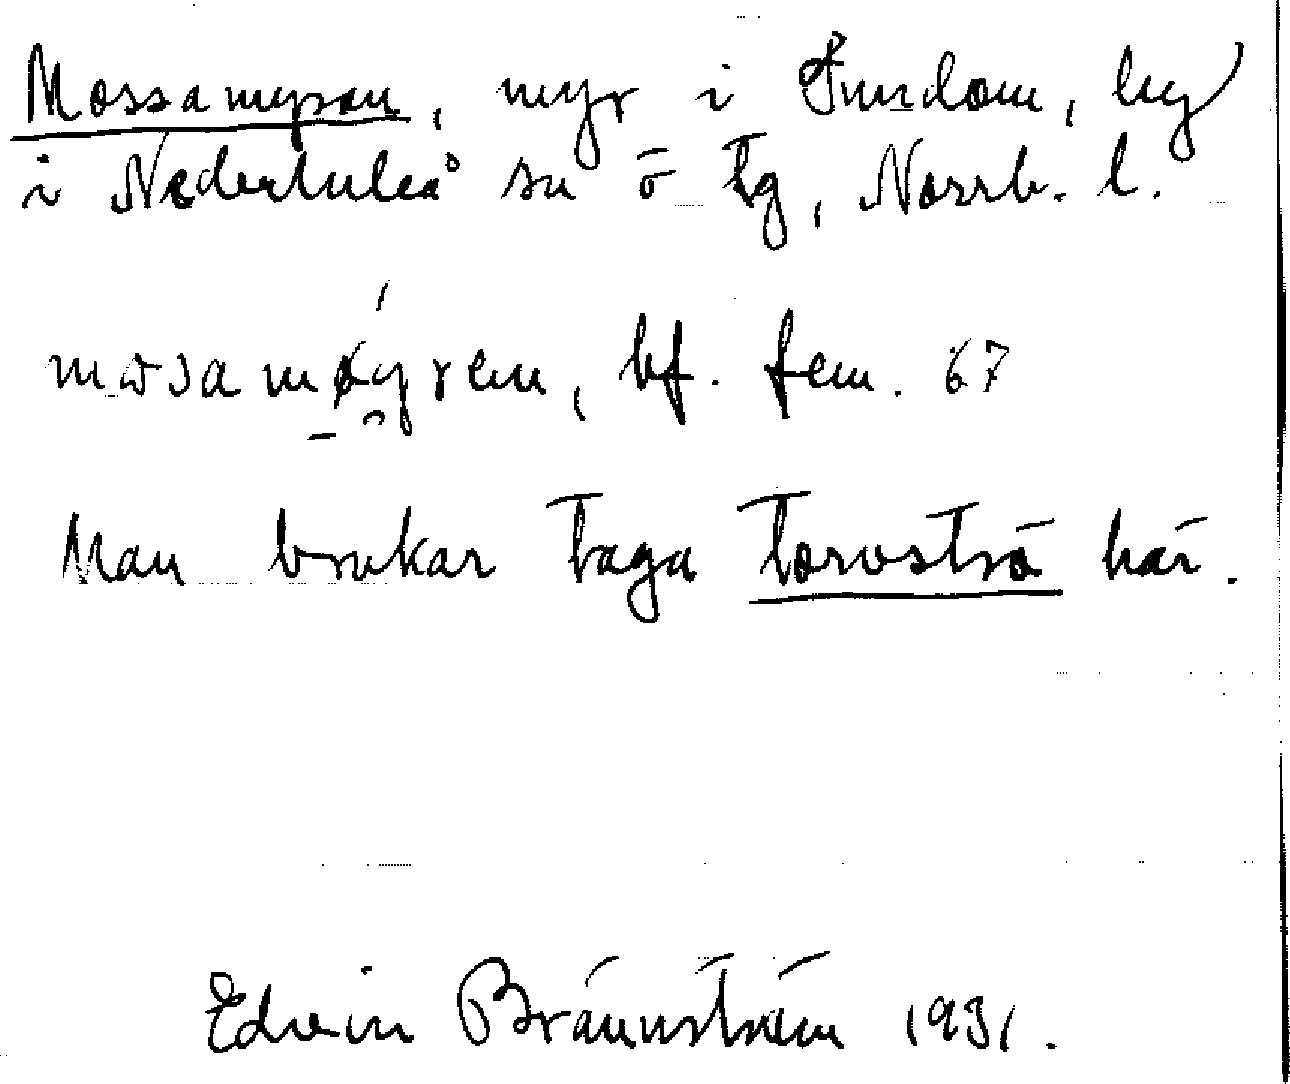 Mossamyran, myr i Sundom, by
i Nederluleå sn ö tg, Norrb. l.
mosamøyren, bf. fem. 67
Man brukar taga torvströ här.
Edvin Brännström 1931.